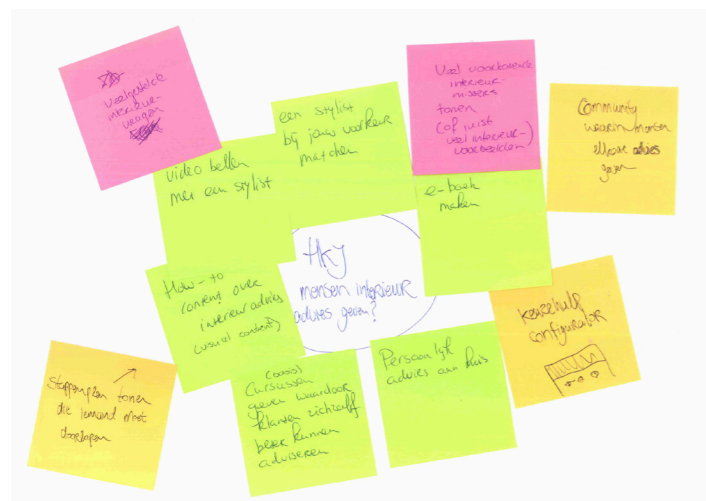 Veelgestelde
interieur-
vragen
een stylist
bij jouw voorkeur
matchen
Veel voorkomende
interieur-
missers
tonen
(of juist
veel interieur-
voorbeelden)
Community
waarin mensen
elkaar advies
geven
video bellen
met een stylist
e-boek
maken
HKJ
mensen interieur
advies geven?
How-to
content over
interieur advies
(visual content)
keuzehulp
configurator
Stappenplan tonen
die iemand moet
doorlopen
Cursussen
geven waardoor
klanten zichzelf
beter kunnen
adviseren
Persoonlijk
advies aan huis